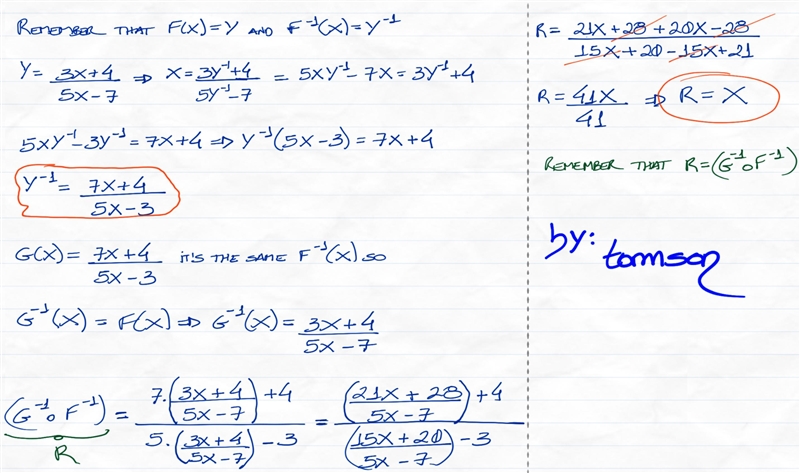 REMEMBER THAT F(X)=Y AND F⁻¹(X)=Y⁻¹
Y= (3X+4)/(5X-7) ⇒ X= (3Y⁻¹+4)/(5Y⁻¹-7) = 5XY⁻¹-7X=3Y⁻¹+4
5XY⁻¹-3Y⁻¹=7X+4 ⇒ Y⁻¹(5X-3)=7X+4
Y⁻¹= (7X+4)/(5X-3)
G(X)= (7X+4)/(5X-3) IT'S THE SAME F⁻¹(X) SO
G⁻¹(X)=F(X) ⇒ G⁻¹(X)= (3X+4)/(5X-7)
(G⁻¹∘F⁻¹) = (7·((3X+4)/(5X-7))+4)/(5·((3X+4)/(5X-7))-3) = (((21X+28)/(5X-7))+4)/(((15X+20)/(5X-7))-3)
R
R= (21X+28+20X-28)/(15X+20-15X+21)
R= 41X/41 ⇒ R=X
REMEMBER THAT R=(G⁻¹∘F⁻¹)
by: tomson